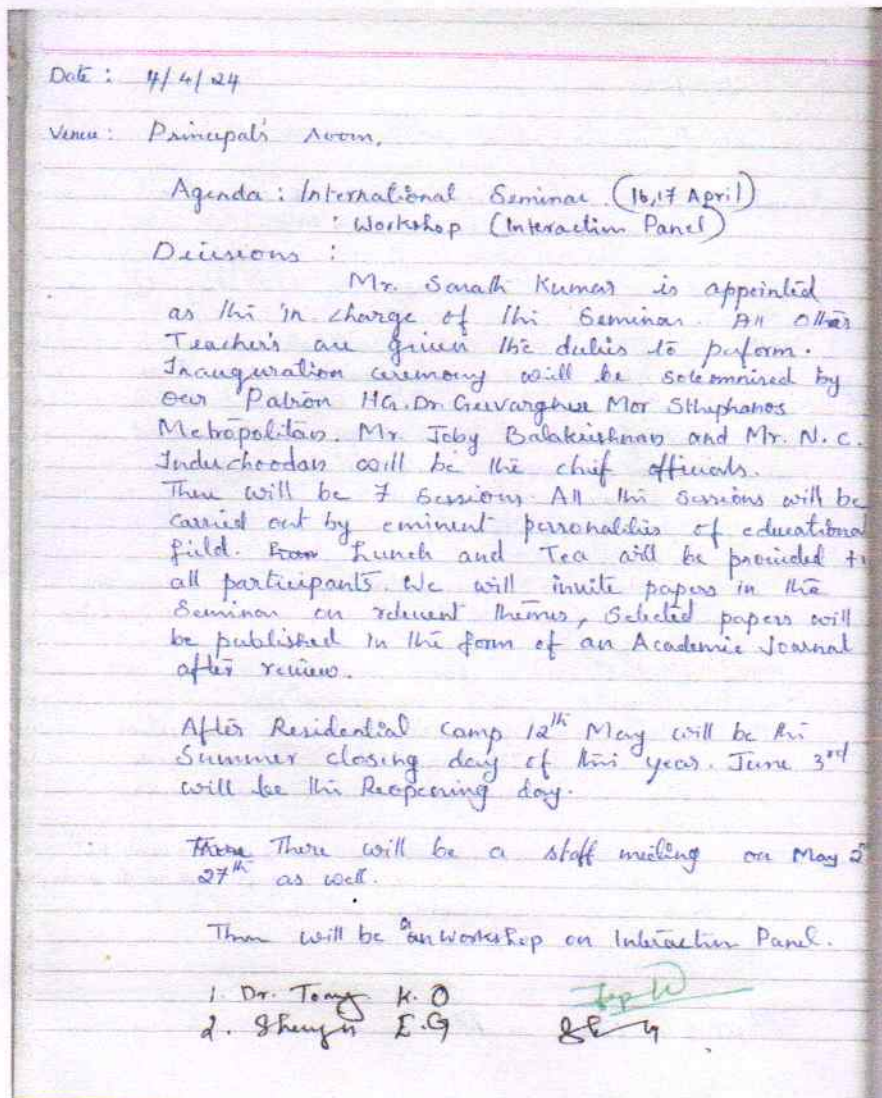 Date : 4/4/24
Venue : Principal's room,
Agenda : International Seminar (16,17 April)
: Workshop (Interaction Panel)
Decisions :
Mr. Sarath Kumar is appointed
as the in charge of the Seminar. All other
Teacher's are given the duties to perform.
Inauguration ceremony will be solemnised by
our Patron HG. Dr. Geevarghese Mor Sthephanos
Metropolitan. Mr. Joby Balakrishnan and Mr. N. C.
Induchoodan will be the chief officials.
There will be 7 Sessions. All the sessions will be
carried out by eminent personalities of educationa
field. Lunch and Tea will be provided to
all participants. We will invite papers in the
Seminar on relevent themes, Selected papers will
be published in the form of an Academic Journal
after review.
After Residential Camp 12th May will be the
Summer closing day of this year. June 3rd
will be the Reopening day.
There There will be a staff meeting on May 2
27th as well.
There will be a workshop on Interaction Panel.
1. Dr. Tomy K.O
2. E.G